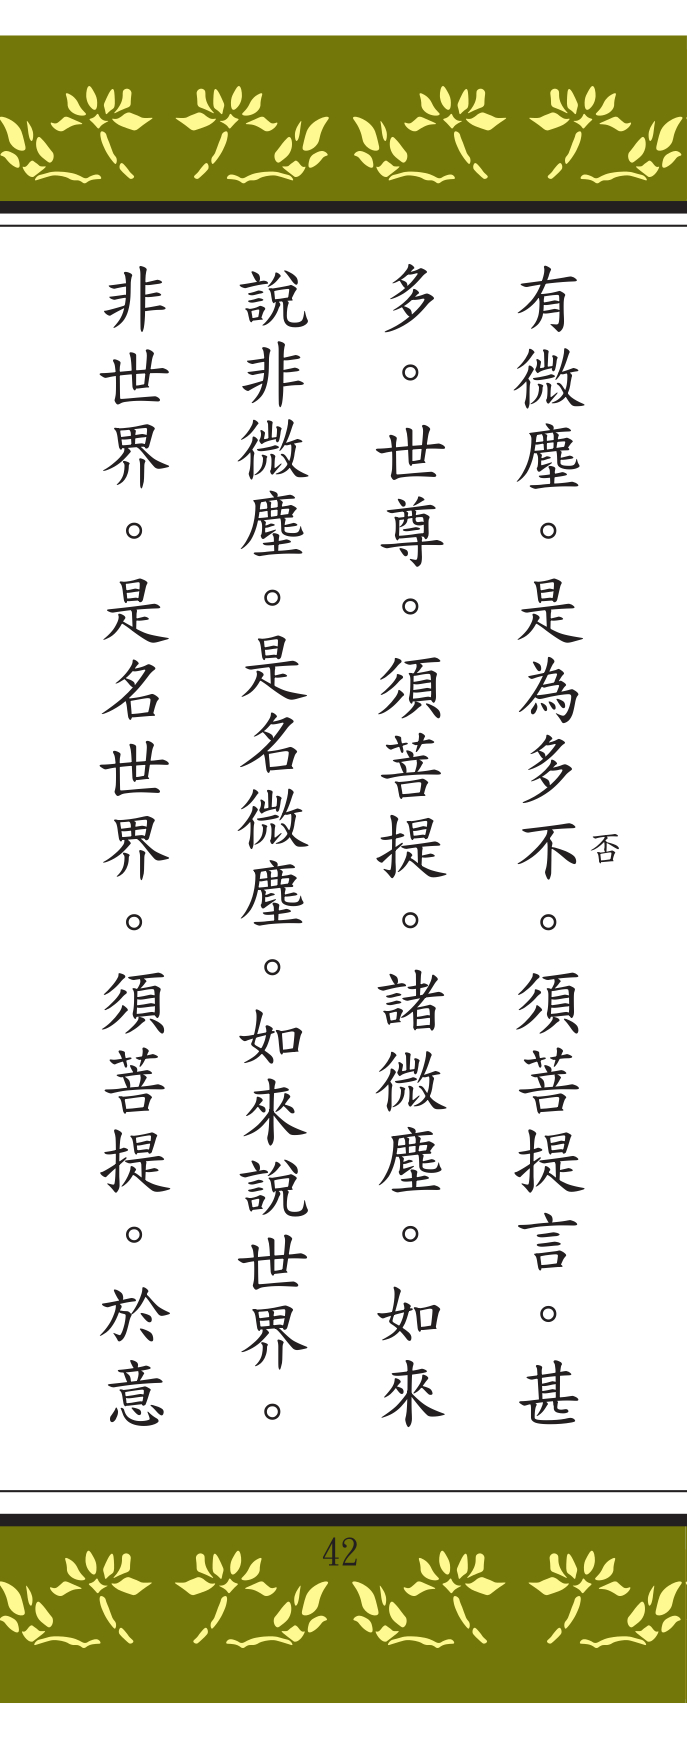 有微塵。是為多不。須菩提言。甚
否
多。世尊。須菩提。諸微塵。如來
說非微塵。是名微塵。如來說世界。
非世界。是名世界。須菩提。於意
42